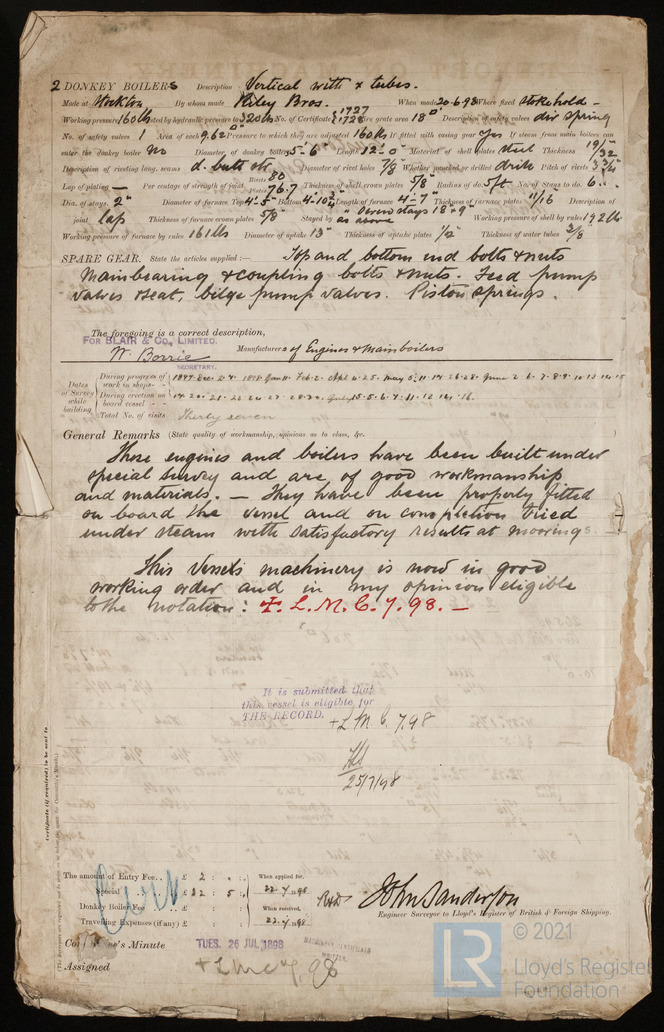 2 DONKEY BOILERS Description Vertical with x tubes.
Made at Stockton By whom made Riley Bros. When made 20.6.98 Where fixed Stokehold -
Working pressure 160 lb tested by hydraulic pressure to 320 lb No. of Certificate 1727 1728 Fire grate area 18 □' Description of safety valves dir spring
No. of safety valves 1 Area of each 9.62 □" Pressure to which they are adjusted 160 lb If fitted with easing gear yes If steam from main boilers can
enter the donkey boiler No Diameter of donkey boiler 5'-6" Length 12'-0" Material of shell plates steel Thickness 19/32
Description of riveting long. seams d. butt str. Diameter of rivet holes 7/8 Whether punched or drilled drild Pitch of rivets
Lap of plating — Per centage of strength of joint Rivets 80 Plates 76.7 Thickness of shell crown plates 5/8 Radius of do. 5 ft No. of Stays to do. 6
Dia. of stays. 2" Diameter of furnace Top 4'.5" Bottom 4'-10 3/4" Length of furnace 4'-7" Thickness of furnace plates 11/16 Description of
joint lap Thickness of furnace crown plates 5/8 Stayed by as above Working pressure of shell by rules 192 lb
Working pressure of furnace by rules 161 lb Diameter of uptake 13" Thickness of uptake plates 1/2 Thickness of water tubes 3/8
SPARE GEAR. State the articles supplied :— Top and bottom end bolts & nuts
Main bearing & coupling bolts & nuts. Feed pump
valves & seat, bilge pump valves. Piston springs.
The foregoing is a correct description,
FOR BLAIR & Co., LIMITED.
W. Borrie Manufacturers of Engines & Main boilers
SECRETARY.
Dates of Survey while building
During progress of work in shops - - 1897 Dec. 2. 4. 1898 Jan 11 Feb. 2. Apl 4. 25. May 5. 11. 14. 26. 28. June 2. 6. 7. 8. 9. 10. 13. 14. 15
During erection on board vessel - - -
Total No. of visits Thirty seven
General Remarks (State quality of workmanship, opinions as to class, &c.
These engines and boilers have been built under
special survey and are of good workmanship
and materials. — They have been properly fitted
on board the vessel and on completion tried
under steam with satisfactory results at moorings.
This Vessels machinery is now in good
working order and in my opinion eligible
to the notation: + L.M.C. 7. 98. —
It is submitted that
this vessel is eligible for
THE RECORD. + L M C. 7.98
25/7/98
Certificate (if required) to be sent to
The amount of Entry Fee. . £ 2 : . : When applied for,
Special . . £ 22 : 5 : 22.7.1898
Donkey Boiler Fee . . £ : : When received,
Travelling Expenses (if any) £ : : 22.7.1898
John Sanderson
Engineer Surveyor to Lloyd's Register of British & Foreign Shipping.
Committee's Minute TUES. 26 JUL 1898
MACHINERY CERTIFICATE WRITTEN.
Assigned + L M C 7. 98
LR © 2021
Lloyd's Register
Foundation